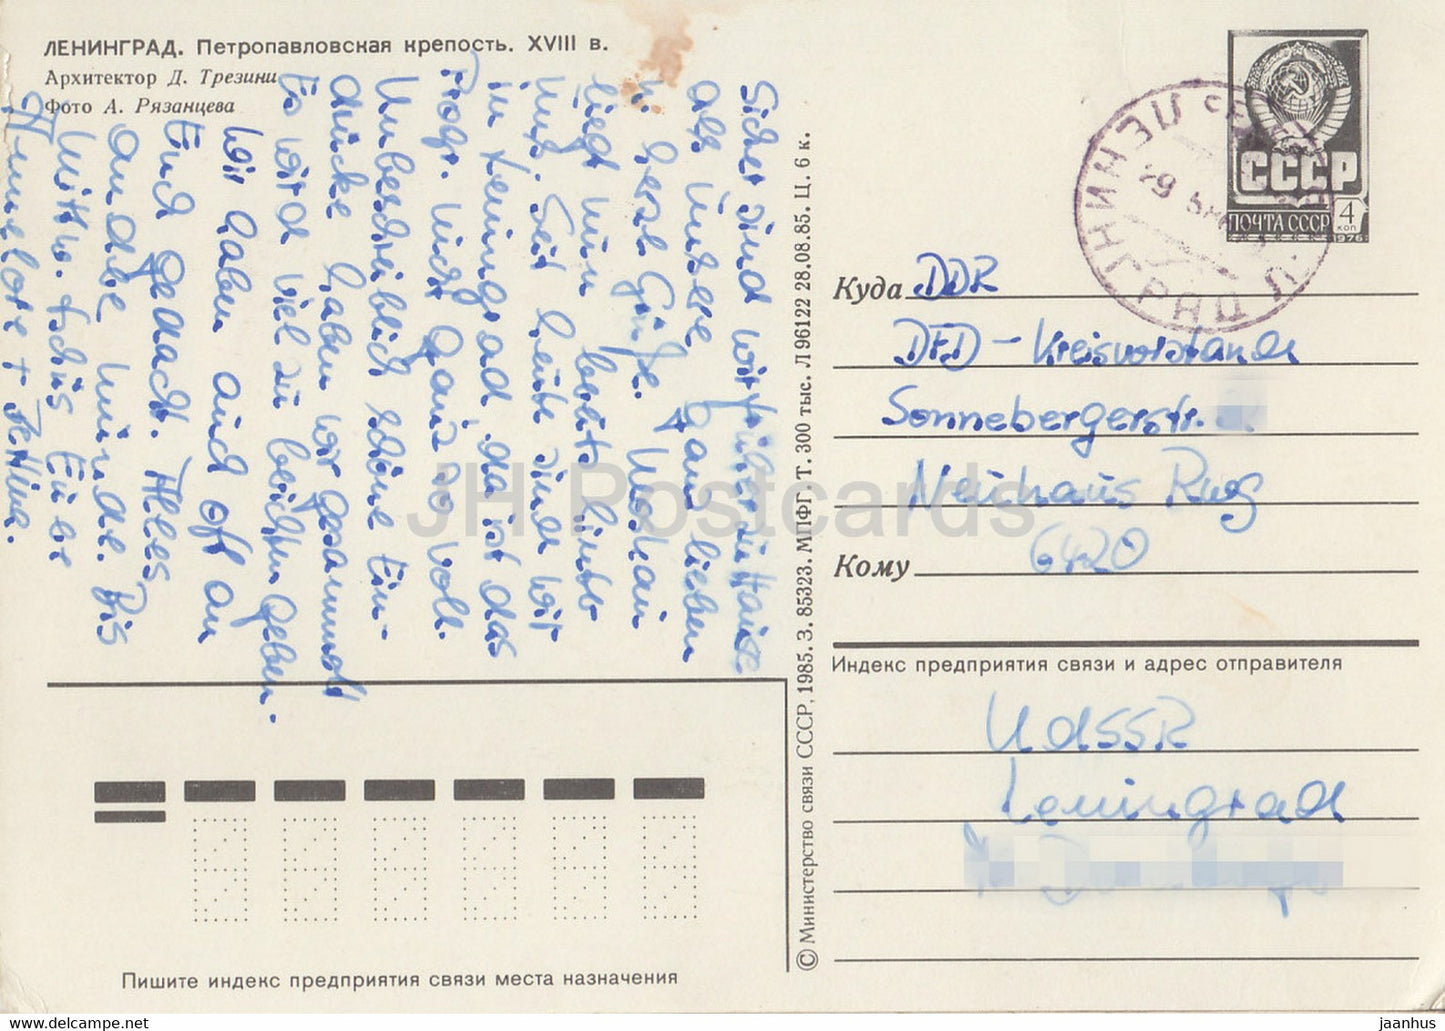 ЛЕНИНГРАД. Петропавловская крепость. XVIII в.
Архитектор Д. Трезини
Фото А. Рязанцева
Sicher sind wir früher zu Hause
als unsere ganz lieben
Grüße. Moskau
liegt nun bereits hinter
uns. Seit heute sind wir
in Leningrad, da ist das
Progr. nicht ganz so voll.
Unbeschreiblich schöne Ein-
drücke haben wir gesammelt
Es wird viel zu berichten geben.
Wir haben auch oft an
Euch gedacht. Alles,
an der Bis
Mittw. Tschüs Eure
Hannelore + Bettina.
© Министерство связи СССР, 1985. З. 85323. МПФГ. Т. 300 тыс. Л 96122 28.08.85. Ц. 6 к.
СССР
ПОЧТА СССР
4
коп
1976
ЛЕНИНГРАД
29
Куда DDR
DFD - Kreisvorstand
Sonnebergerstr.
Neuhaus Rwg
6420
Кому
Индекс предприятия связи и адрес отправителя
UdSSR
Leningrad
Пишите индекс предприятия связи места назначения
JH Postcards
www.delcampe.net
jaanhus